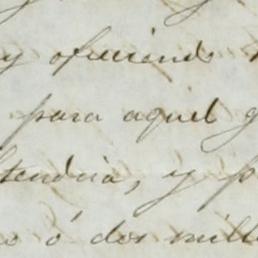 y ofreciendo
para aquel g
tendria, y p
o ó dos mill